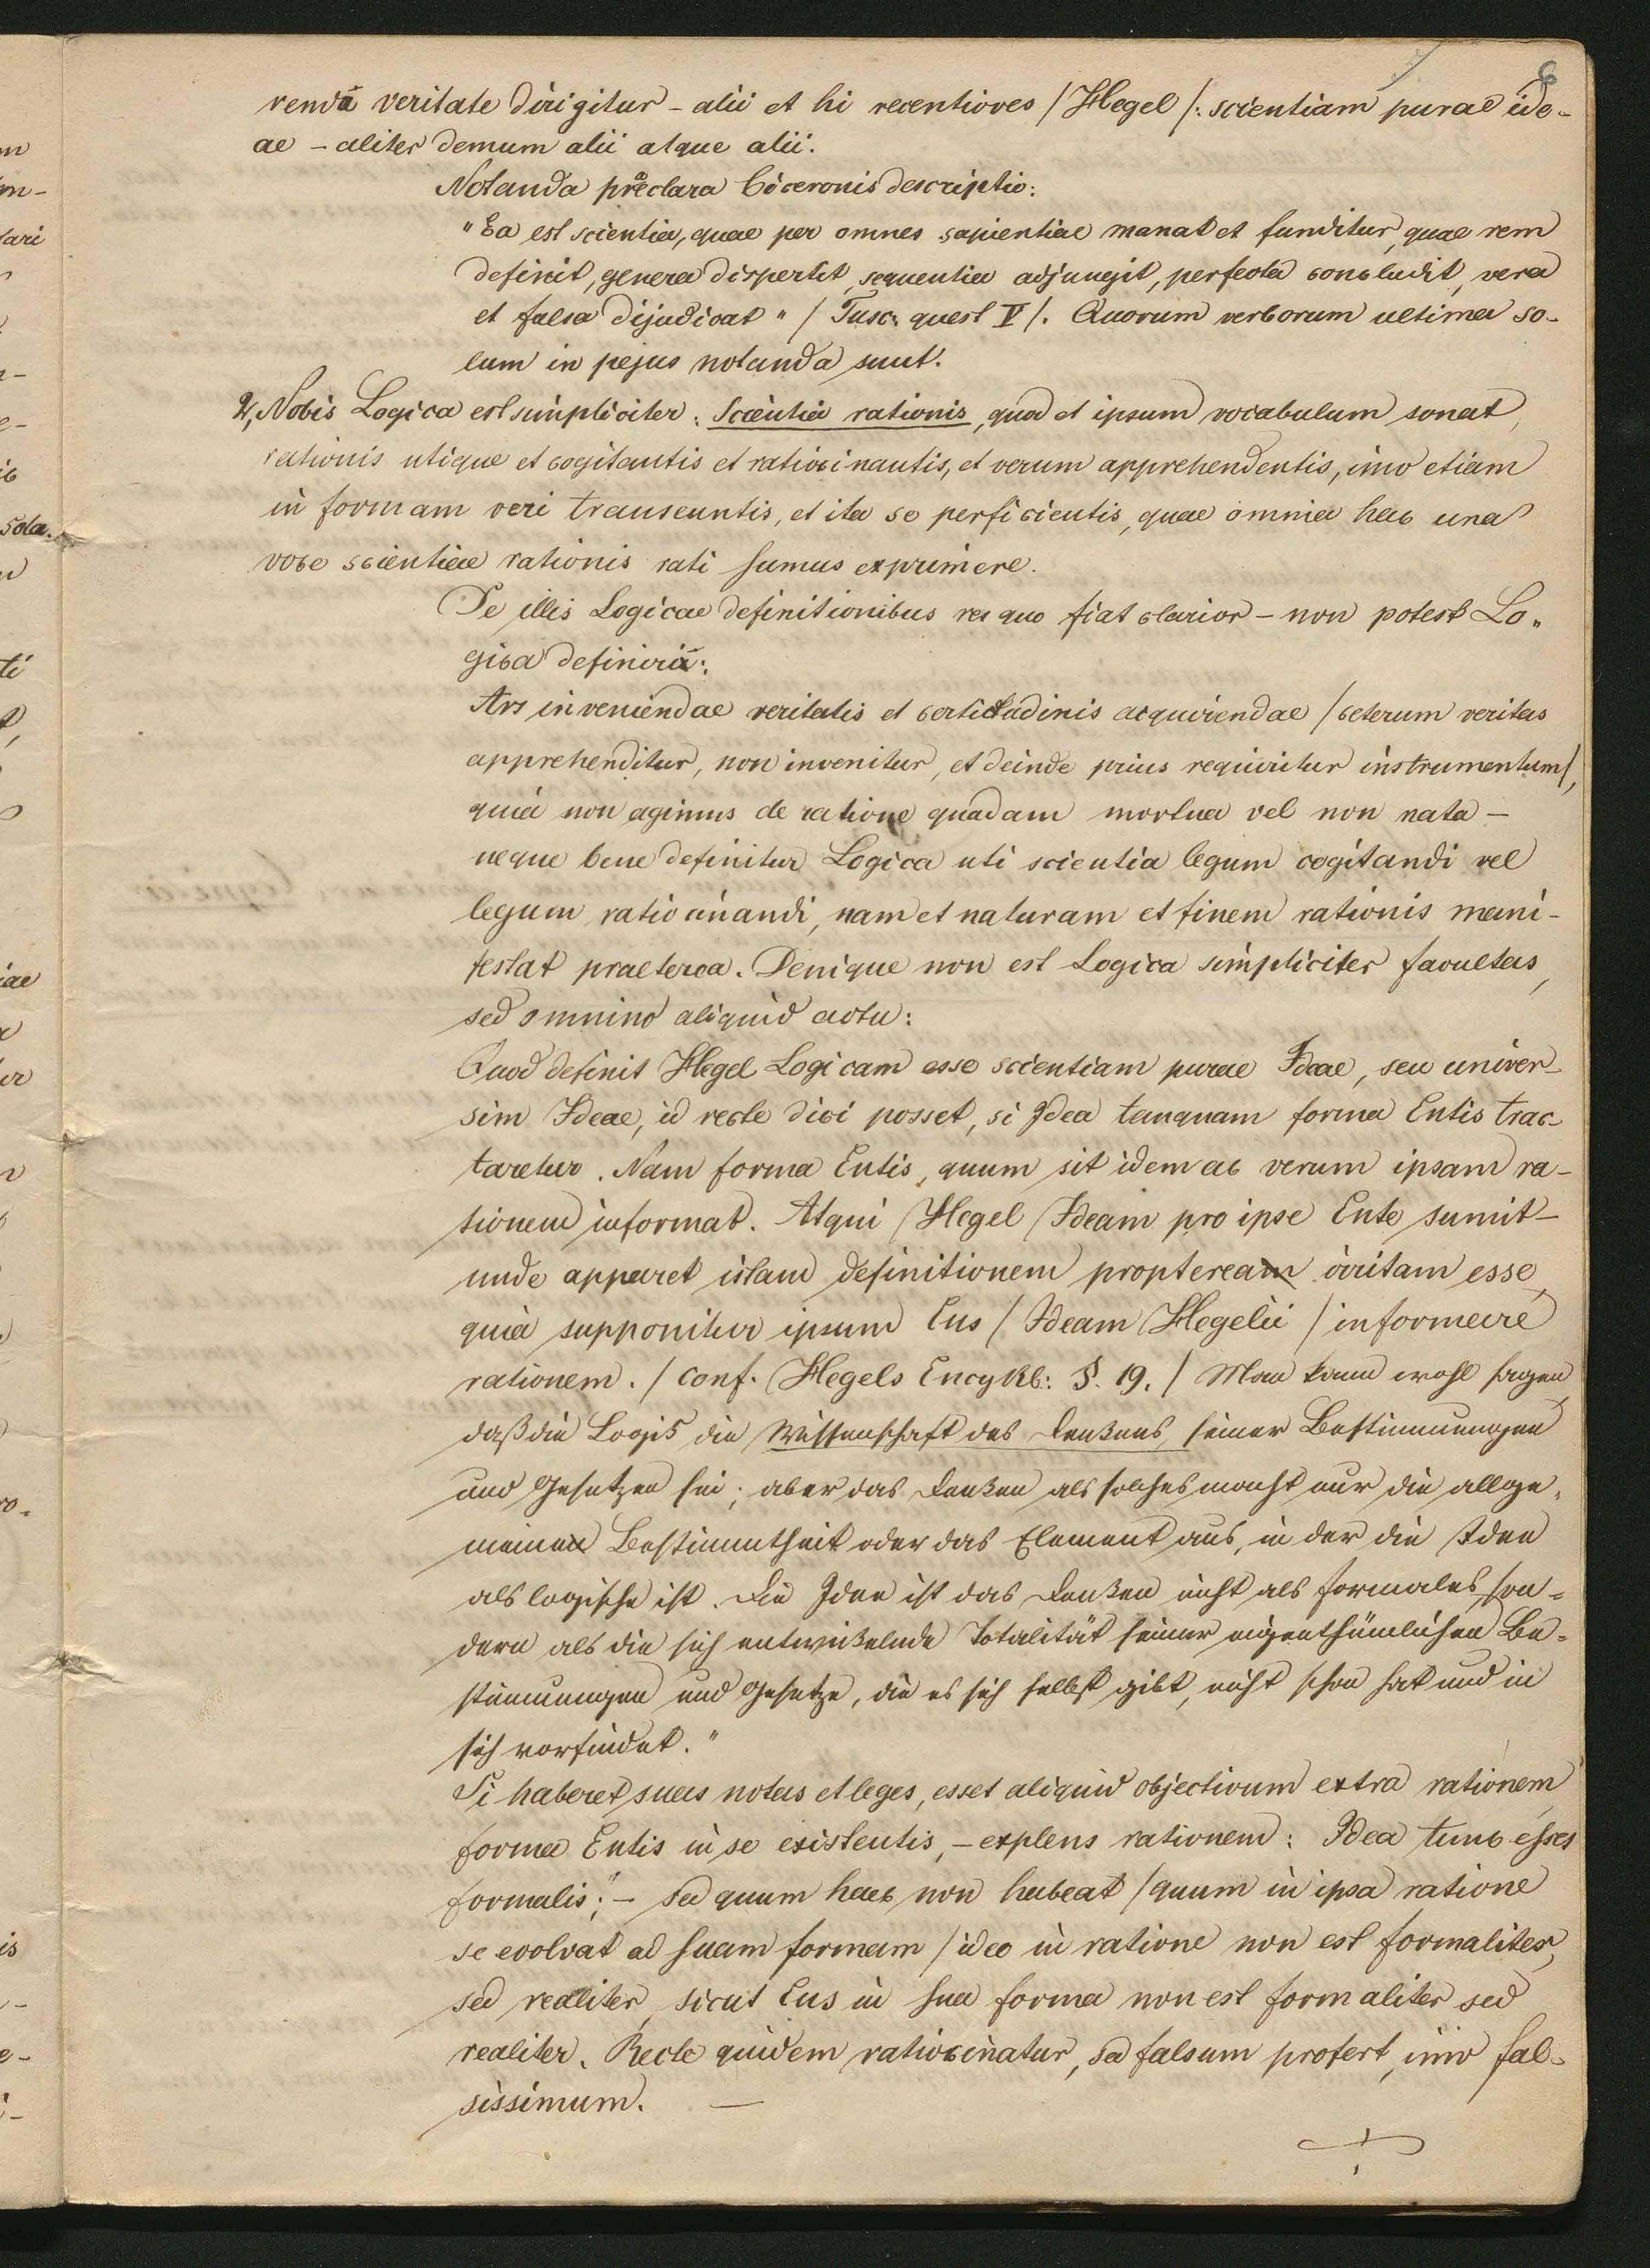 6
rendâ veritate dirigitur – alii et hi recentiores /Hegel/: scientiam purae ide-
ae – aliter demum alii atque alii.
Notanda præclara Ciceronis descriptio:
"Ea est scientia, quae per omnes sapientiae manat et funditur, quae rem
definit, genera dispertit, sequentia adjungit, perfecta concludit, vera
et falsa dijudicat" / Tusc. quest V/. Quorum verborum ultima so-
lum in pejus notanda sunt.
2, Nobis Logica est simpliciter: Scientia rationis, quod et ipsum vocabulum sonat,
rationis utique et cogitantis et ratiocinantis, et verum apprehendentis, imo etiam
in formam veri transeuntis, et ita se perficientis, quae omnia hac una
voce scientiae rationis rati sumus exprimere.
De illis Logicae definitionibus res quo fiat clarior – non potest Lo„
gica definiri:
Ars inveniendae veritatis et certitudinis acquirendae /ceterum veritas
apprehenditur, non invenitur, et deinde prius requiritur instrumentum/,
quia non agimus de ratione quadam mortua vel non nata –
neque bene definitur Logica uti scientia legum cogitandi vel
legum ratiocinandi, nam et naturam et finem rationis mani-
festat praeterea. Denique non est Logica simpliciter facultas,
sed omnino aliquid actu:
Quod definit Hegel Logicam esse scientiam purae Ideae, seu univer-
sim Ideae, id recte dici posset, si Idea tanquam forma Entis trac-
taretur. Nam forma Entis, quum sit idem ac verum ipsam ra-
tionem informat. Atqui Hegel Ideam pro ipse Ente sumit –
unde apparet istam definitionem propteream irritam esse,
quia supponitur ipsum Ens / Ideam Hegelii / informare
rationem. / Conf. Hegels Encykl: §. 19. / Man kann wohl sagen,
daß die Logik die Wissenschaft des Denkens, seiner Bestimmungen
und Gesetzen sei; aber das Denken als solches macht nur die allge„
meinen Bestimmtheit oder das Element aus, in der die Idee
als logische ist. Die Idee ist das Denken nicht als formales, son=
dern als die sich entwickelnde Totalität seiner eigenthümlichen Be=
stimmungen und Gesetze, die es sich selbst gibt, nicht schon hat und in
sich vorfindet."
Si haberet suas notas et leges, esset aliquid objectivum extra rationem,
forma Entis in se existentis, – explens rationem: Idea tunc esset
formalis; – sed quum haec non habeat /quum in ipsa ratione
se evolvat ad suam formam / ideo in ratione non est formaliter,
sed realiter, sicut Ens in sua forma non est formaliter sed
realiter. Recte quidem ratiocinatur, sed falsum profert, imo fal-
sissimum. —